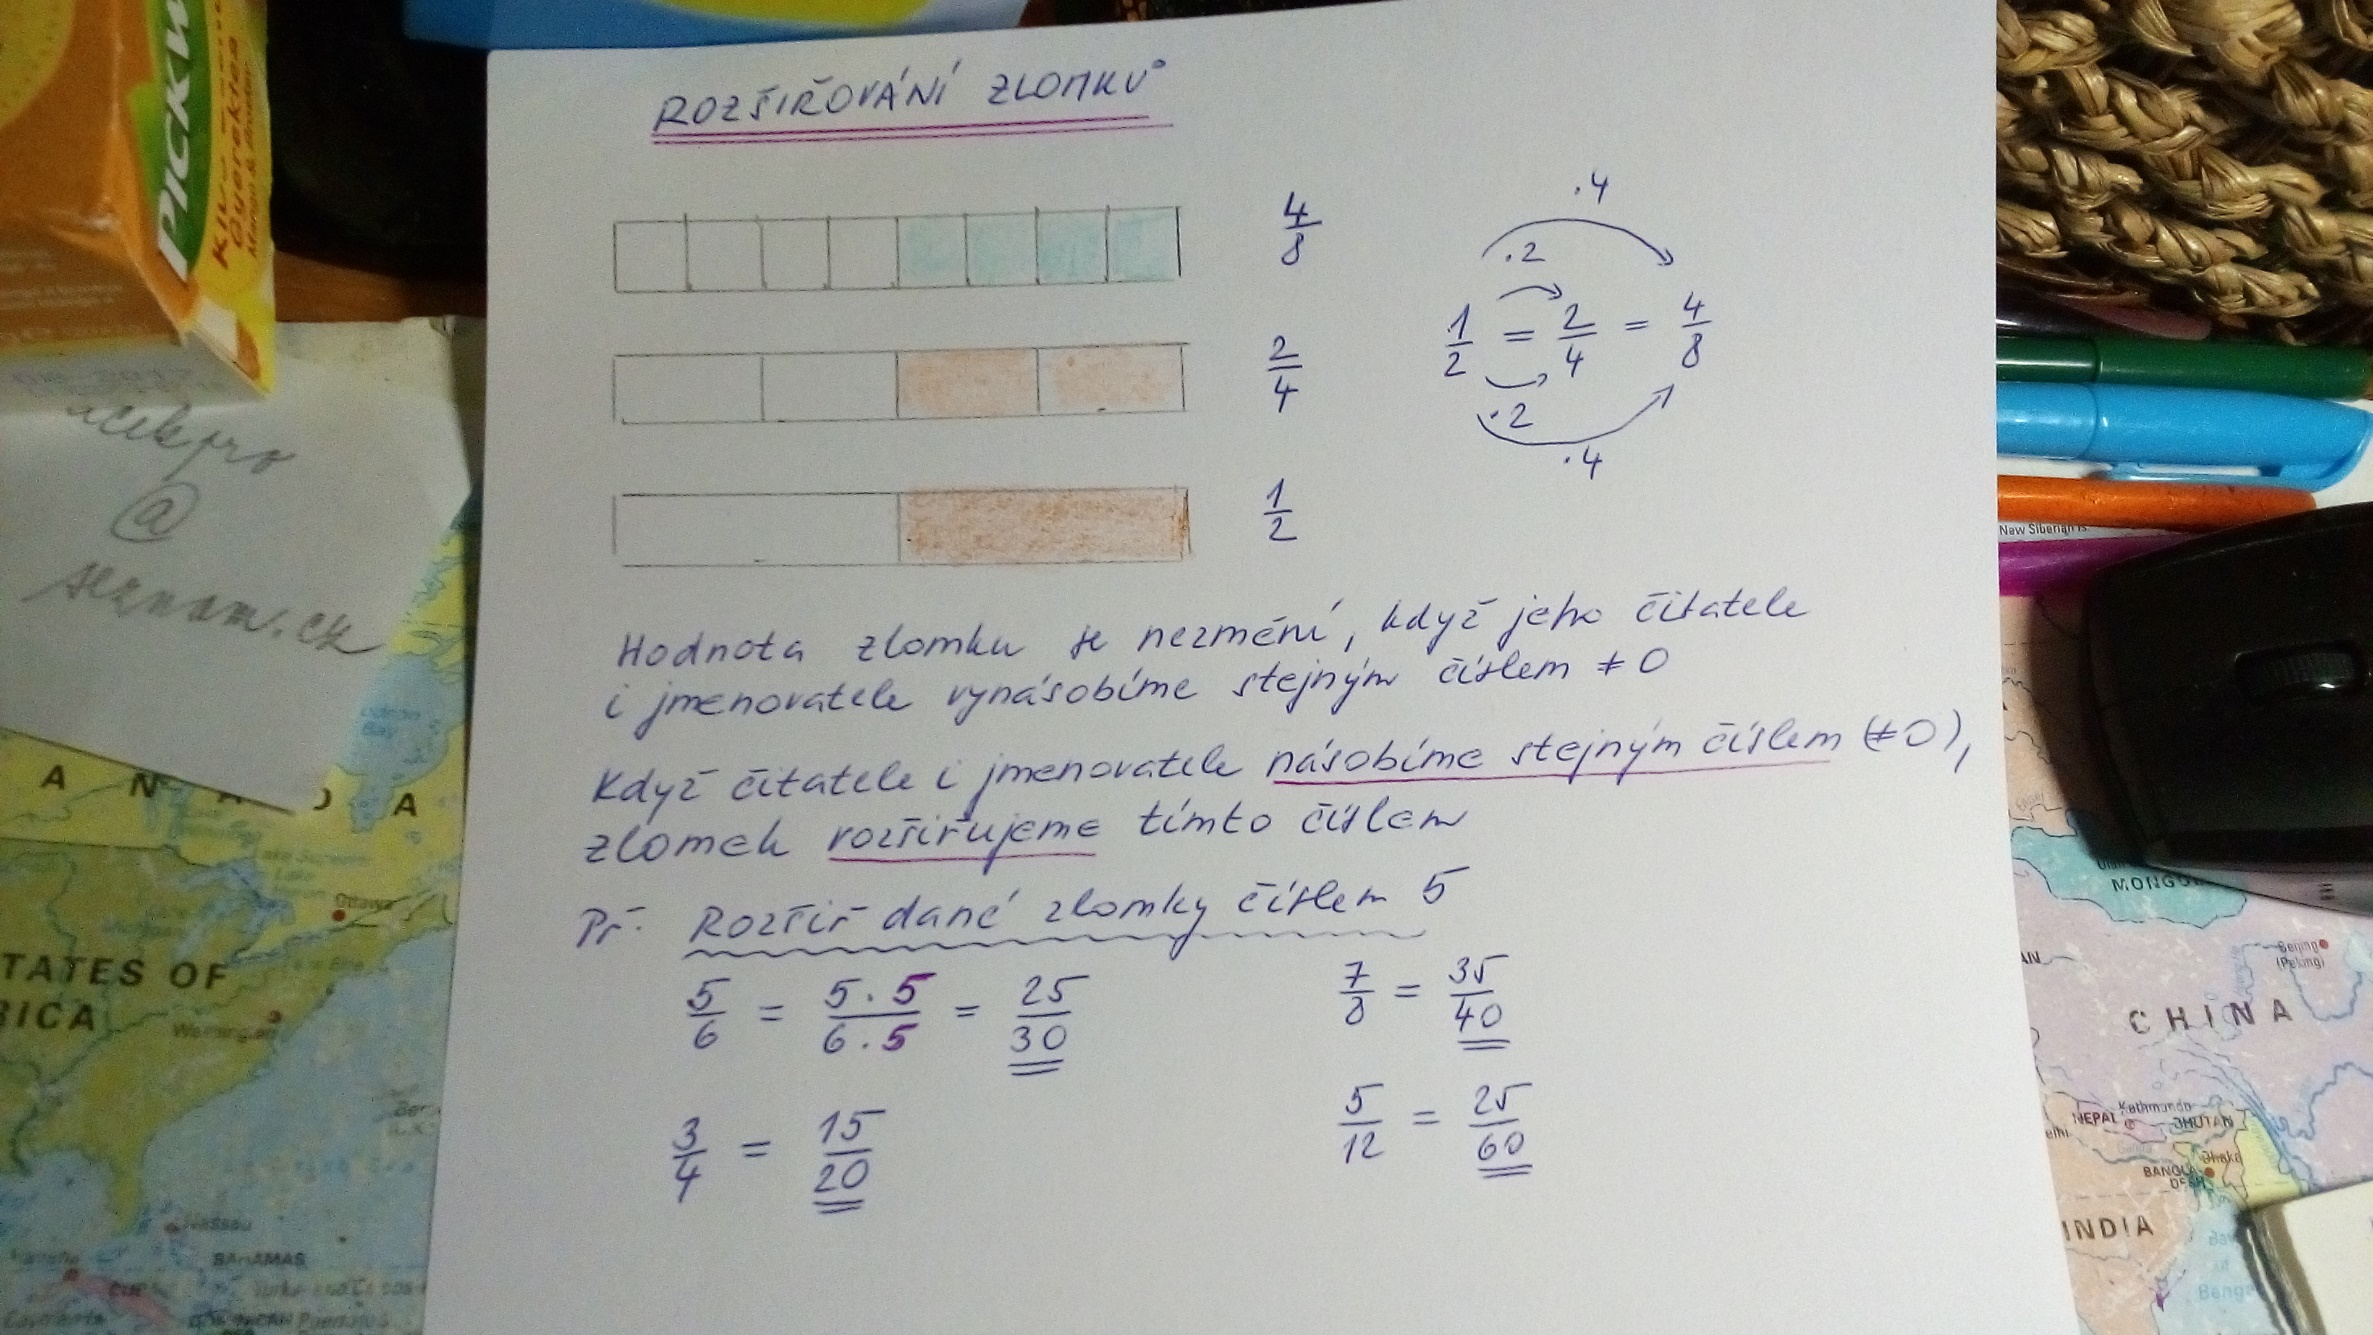 ROZŠIŘOVÁNÍ ZLOMKŮ
4/8
2/4
1/2
.4
.2
1/2 = 2/4 = 4/8
.2
.4
Hodnota zlomku se nezmění, když jeho čitatele
i jmenovatele vynásobíme stejným číslem ≠ 0
Když čitatele i jmenovatele násobíme stejným číslem (≠0),
zlomek rozšiřujeme tímto číslem
Př. Rozšiř dané zlomky číslem 5
5/6 = 5.5/6.5 = 25/30
7/8 = 35/40
3/4 = 15/20
5/12 = 25/60
PICKW
@
seznam.cz
A N A D A
Ottawa
TATES OF
RICA
Washington
Nassau
BAHAMAS
New Siberian Is.
MONGO
Beijing
(Peking)
CHINA
NEPAL
Kathmandu
BHUTAN
Dhaka
BANGLA
DESH
INDIA